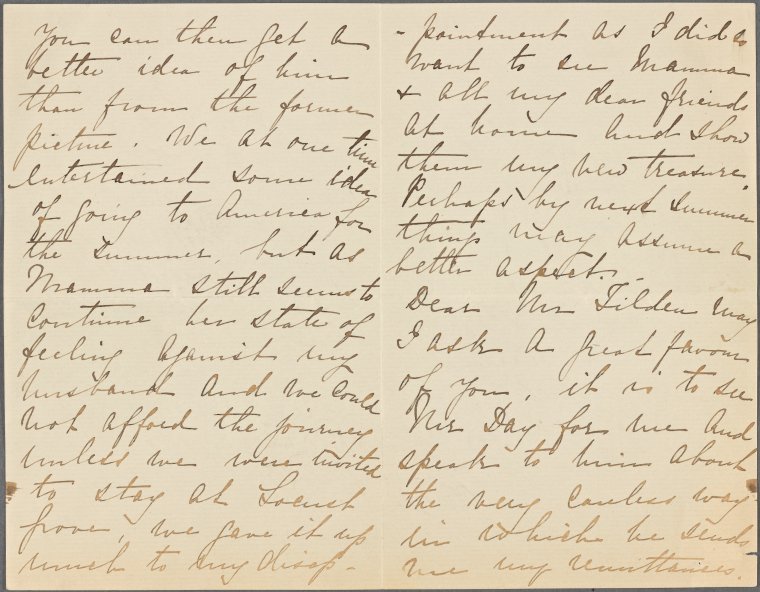 You can then get a
better idea of him
than from the former
picture. We at one time
entertained some idea
of going to America for
the summer, but as
Mamma still seems to
continue her state of
feeling against my
husband and we could
not afford the journey
unless we were invited
to stay at Locust
grove, we gave it up
much to my disap-
-pointment as I did so
want to see Mamma
& all my dear friends
at home and show
them my new treasure.
Perhaps by next summer
things may assume a
better aspect.
Dear Mr Tilden may
I ask a great favour
of you, it is to see
Mr Day for me and
speak to him about
the very careless way
in which he sends
me my remittances.